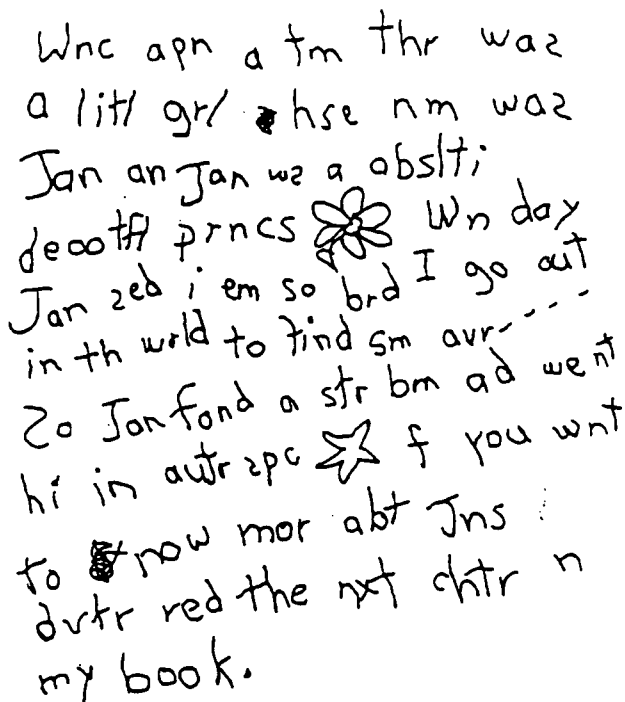 Wnc apn a tm thr waz
a litl grl hse nm waz
Jan an Jan wz a abslti
deootfl prncs Wn day
Jan zed i em so brd I go out
in th wrld to find sm avr-----
Zo Jan fond a str bm ad went
hi in autr zpc f you wnt
to now mor abt Jns
dvtr red the nxt chtr n
my book.